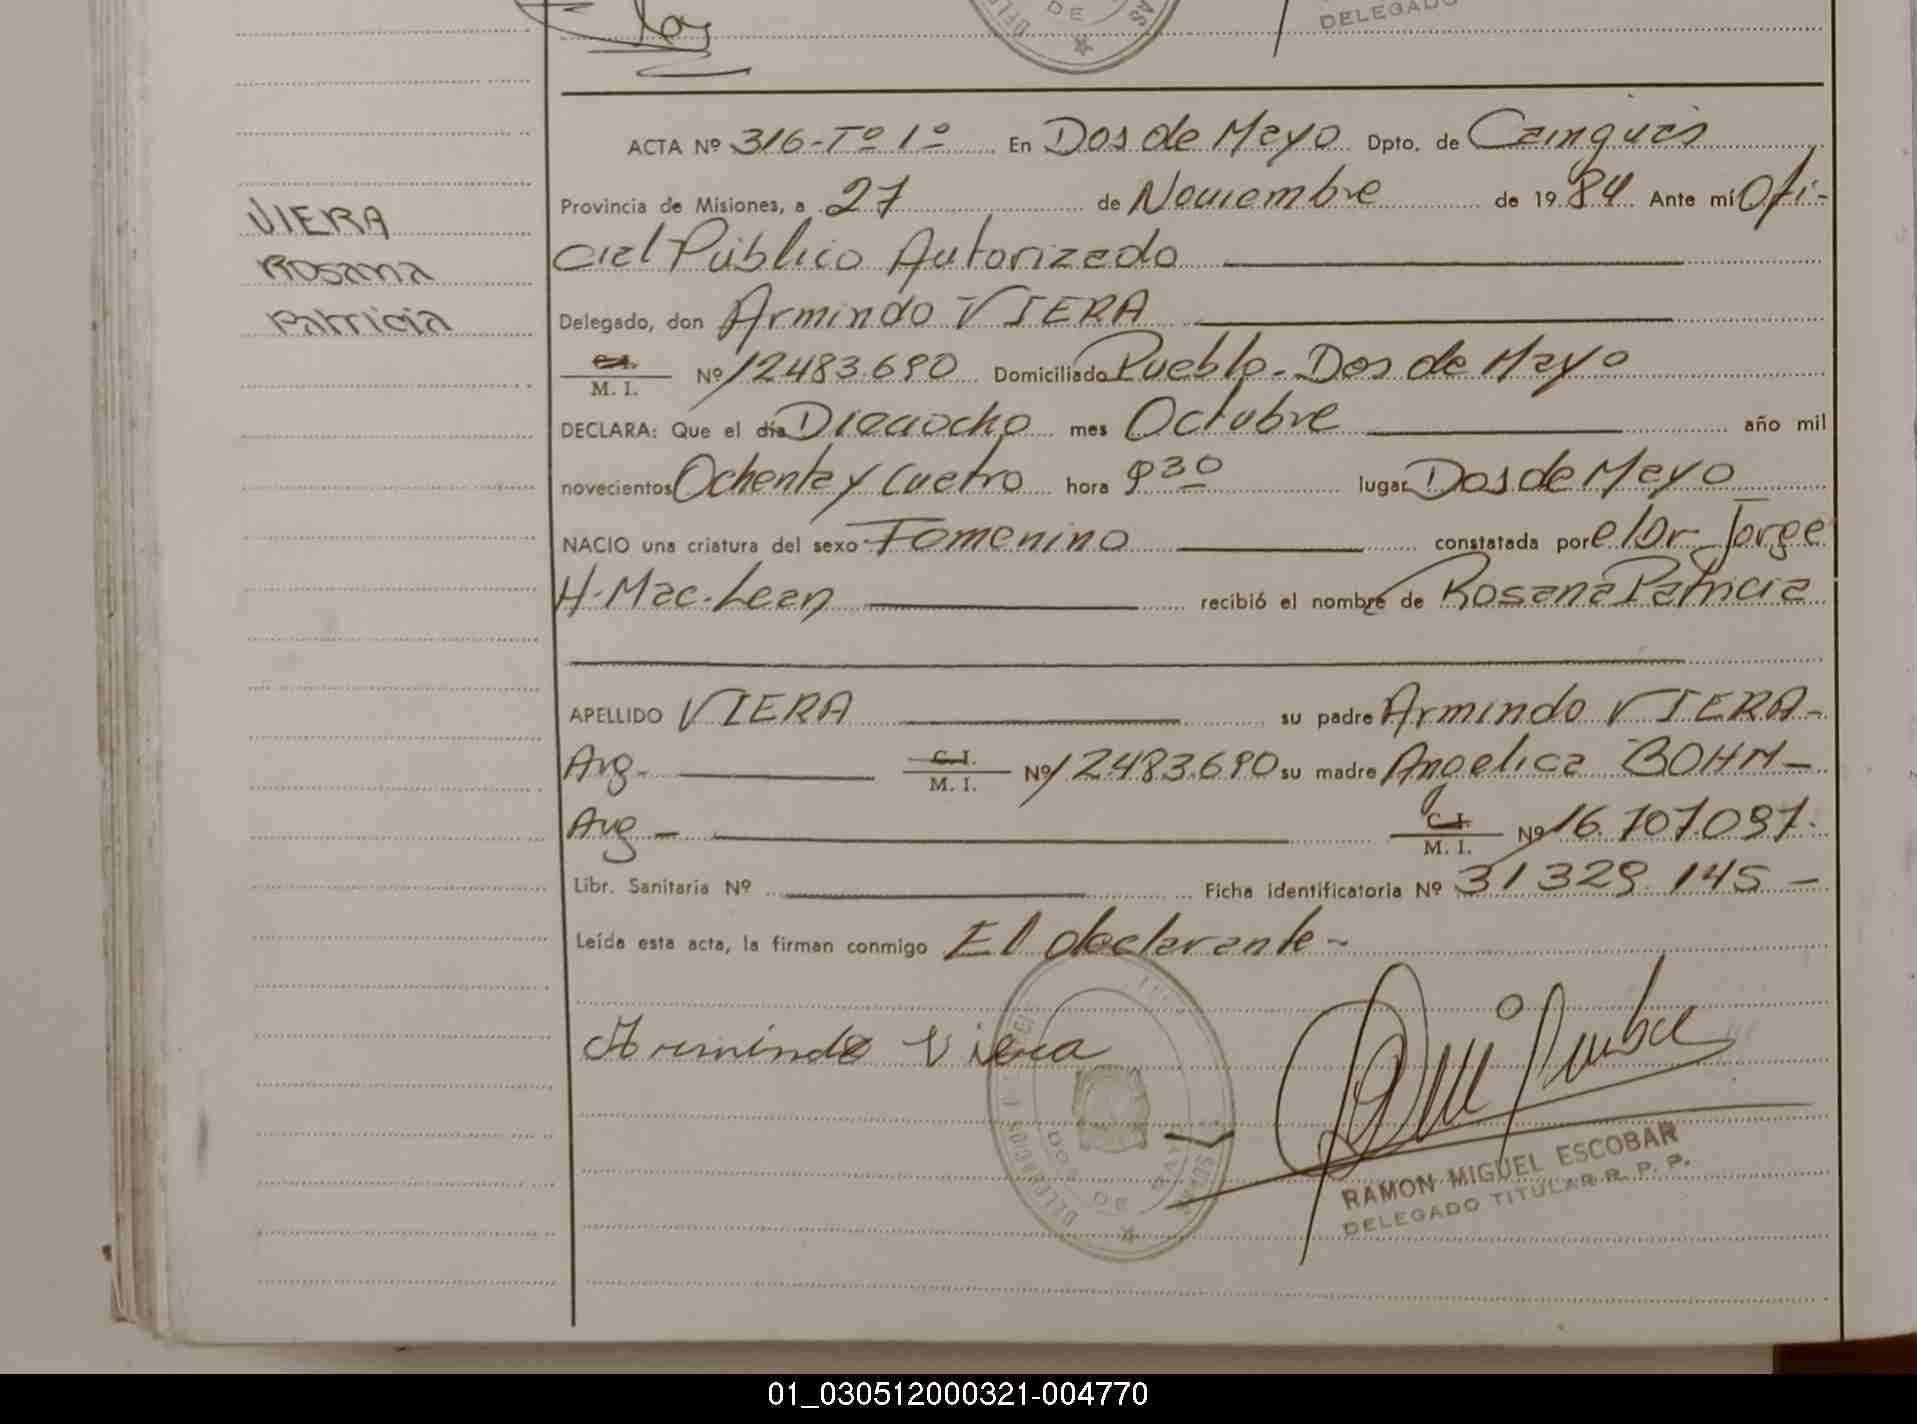 DE
DELEGADO
ACTA Nº 316-Tº 1º En Dos de Mayo Dpto. de Cainguás
Provincia de Misiones, a 27 de Noviembre de 1984 Ante mí Ofi-
VIERA
cial Público Autorizado
Rosana
Patricia
Delegado, don Armindo VIERA
C.I. M. I. Nº 12483.690 Domiciliado Pueblo-Dos de Mayo
DECLARA: Que el día Dieciocho mes Octubre año mil
novecientos Ochenta y Cuatro hora 930 lugar Dos de Mayo
NACIO una criatura del sexo Femenino constatada por el Dr. Jorge
H. Mac. Lean recibió el nombre de Rosana Patricia
APELLIDO VIERA su padre Armindo VIERA-
Arg- C.I. M. I. Nº 12483.690 su madre Angelica BOHM-
Arg- C.I. M. I. Nº 16.707.097.
Libr. Sanitaria Nº Ficha identificatoria Nº 31 329 145 -
Leída esta acta, la firman conmigo El declarante-
Armindo Viera
DOS DE MAYO
RAMON MIGUEL ESCOBAR
DELEGADO TITULAR R. P. P.
01_030512000321-004770